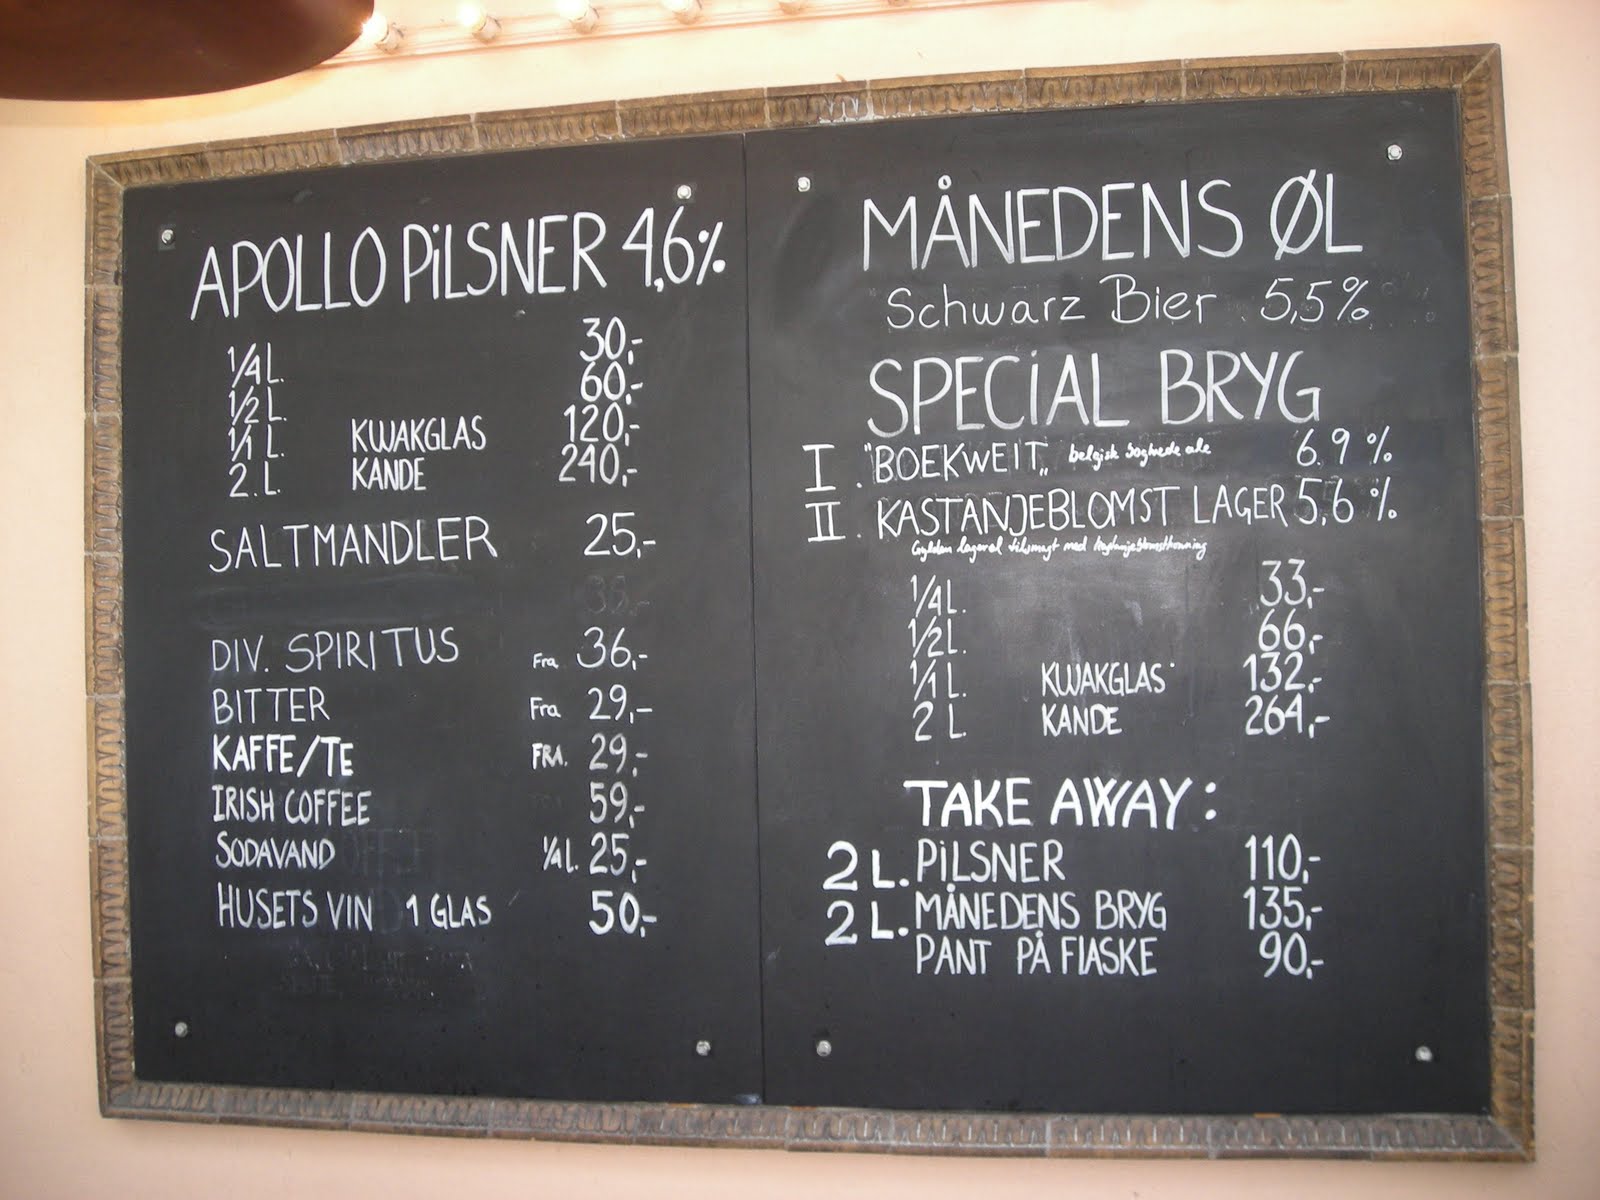 APOLLO PILSNER 4,6%
1/4 L. 30,-
1/2 L. 60,-
1/1 L. KWAKGLAS 120,-
2. L. KANDE 240,-
SALTMANDLER 25,-
DIV. SPIRITUS Fra 36,-
BITTER Fra 29,-
KAFFE/TE FRA. 29,-
IRISH COFFEE 59,-
SODAVAND 1/4 L. 25,-
HUSETS VIN 1 GLAS 50,-
MÅNEDENS ØL
Schwarz Bier 5,5%
SPECIAL BRYG
I. "BOEKWEIT" belgisk boghvede ale 6.9 %
II. KASTANJEBLOMST LAGER 5,6 %
Gylden lagerøl tilsmagt med kastanjeblomsthonning
1/4 L. 33,-
1/2 L. 66,-
1/1 L. KWAKGLAS 132,-
2 L. KANDE 264,-
TAKE AWAY:
2 L. PILSNER 110,-
2 L. MÅNEDENS BRYG 135,-
PANT PÅ FLASKE 90,-